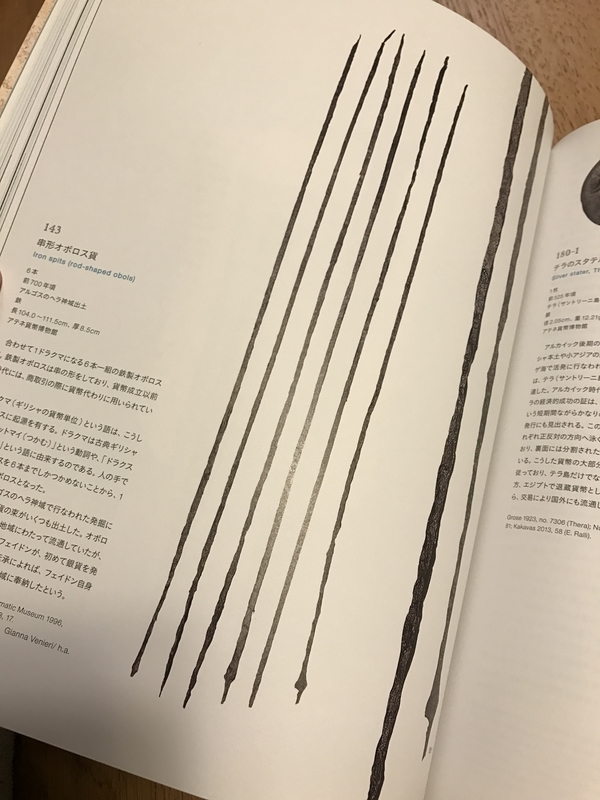 143
串形オボロス貨
Iron spits (rod-shaped obols)
6本
前700年頃
アルゴスのヘラ神域出土
鉄
長104.0〜111.5cm、厚8.5cm
アテネ貨幣博物館
合わせて1ドラクマになる6本一組の鉄製オボロス
。鉄製オボロスは串の形をしており、貨幣成立以前
時代には、商取引の際に貨幣代わりに用いられてい
クマ（ギリシャの貨幣単位）という話は、こうし
スに起源を有する。ドラクマは古典ギリシャ
ットマイ（つかむ）」という動詞や、「ドラクス
」という語に由来するのである。人の手で
スを6本までしかつかめないことから、1
ボロスとなった。
ゴスのヘラ神域で行なわれた発掘に
貨の束がいくつも出土した。オボロ
地域にわたって流通していたが、
フェイドンが、初めて銀貨を発
伝承によれば、フェイドン自身
域に奉納したという。
matic Museum 1996,
, 17.
Gianna Venieri/ h.a.
150-1
テラのスタテル
Silver stater, Th
1枚
前525年頃
テラ（サントリーニ島
銀
径2.05cm、重12.21g
アテネ貨幣博物館
アルカイック後期の
シャ本土や小アジアの
ゲ海で活発に行なわれ
は、テラ（サントリーニ島
達した。アルカイック時代
ラの経済的成功の証は、
いう短期間ながらかなりの
発行にも見出される。この
れぞれ正反対の方向へ泳ぐ
おり、裏面には分割された
いる。こうした貨幣の大部分
従っており、テラ島だけでな
方、エジプトで退蔵貨幣とし
ら、交易により国外にも流通し
Grose 1923, no. 7306 (Thera); Na
81; Kakavas 2013, 58 (E. Ralli).